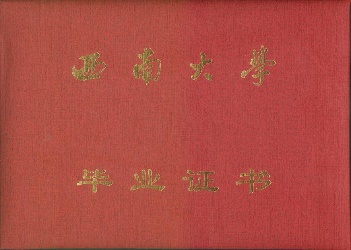 西南大学
毕业证书